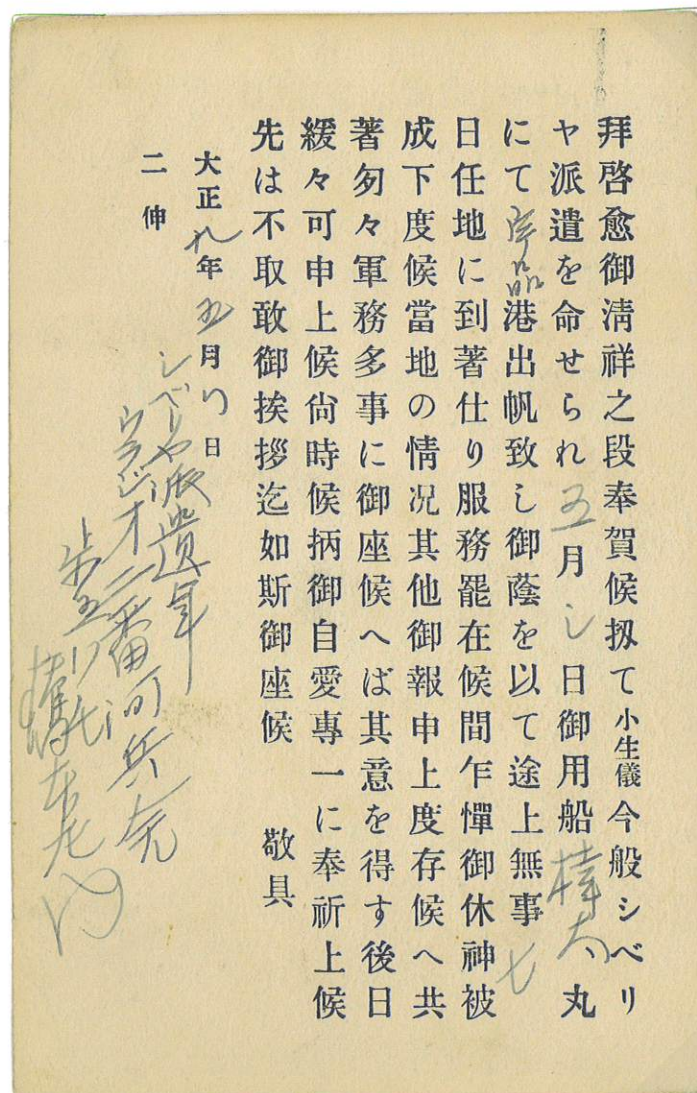 拜啓愈御淸祥之段奉賀候扨て小生儀今般シベリ
ヤ派遣を命せられ五月 日御用船樺太丸
にて宇品港出帆致し御蔭を以て途上無事七
日任地に到著仕り服務罷在候間乍憚御休神被
成下度候當地の情況其他御報申上度存候へ共
著匆々軍務多事に御座候へば其意を得す後日
緩々可申上候尙時候柄御自愛專一に奉祈上候
先は不取敢御挨拶迄如斯御座候 敬具
大正九年五月 日
二伸
シベリヤ派遣軍
ウラジオ二番河兵